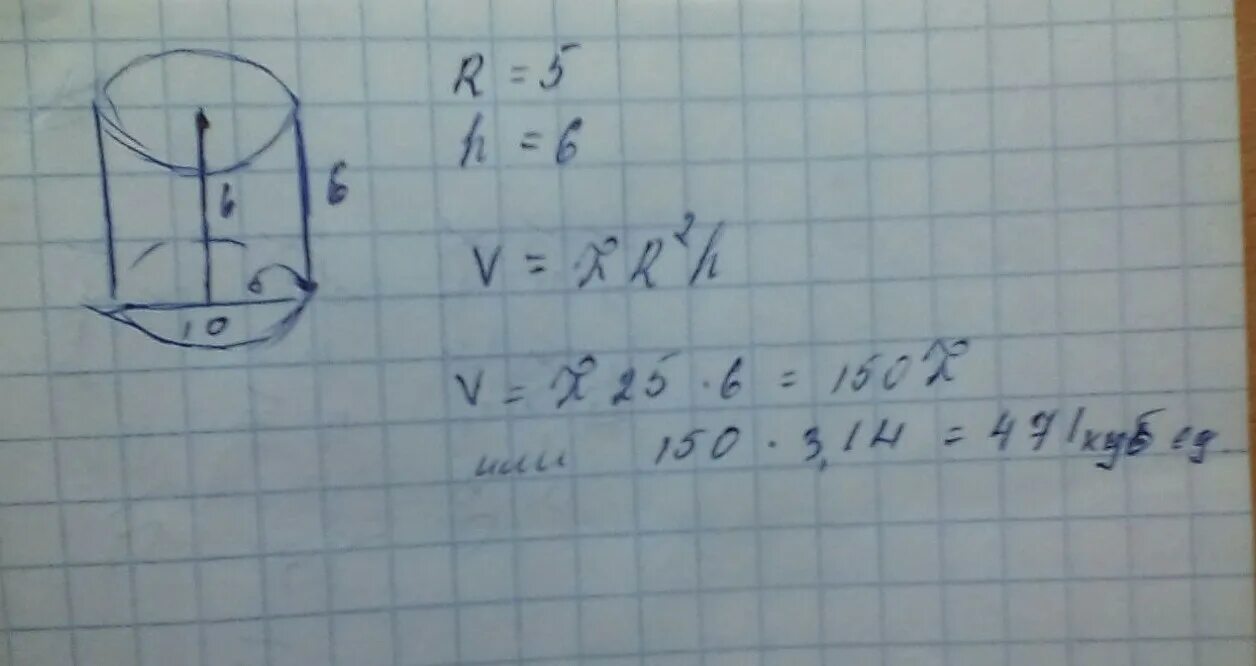 R = 5
h = 6
6
6
10
V = π R²h
V = π 25 · 6 = 150 π
или 150 · 3,14 = 471 куб ед